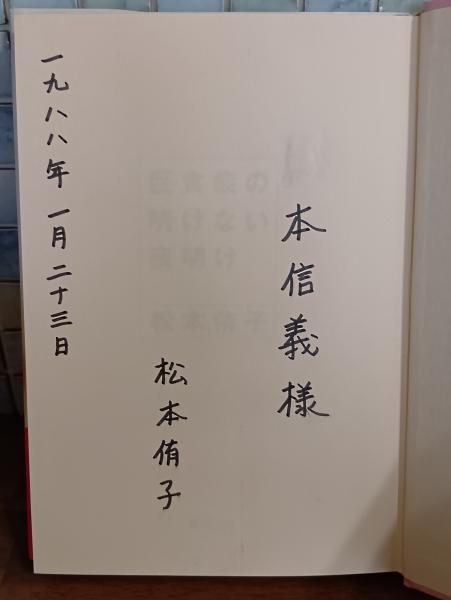 本信義様
松本侑子
一九八八年 一月二十三日
巨食症の
明けない
夜明け
松本侑子